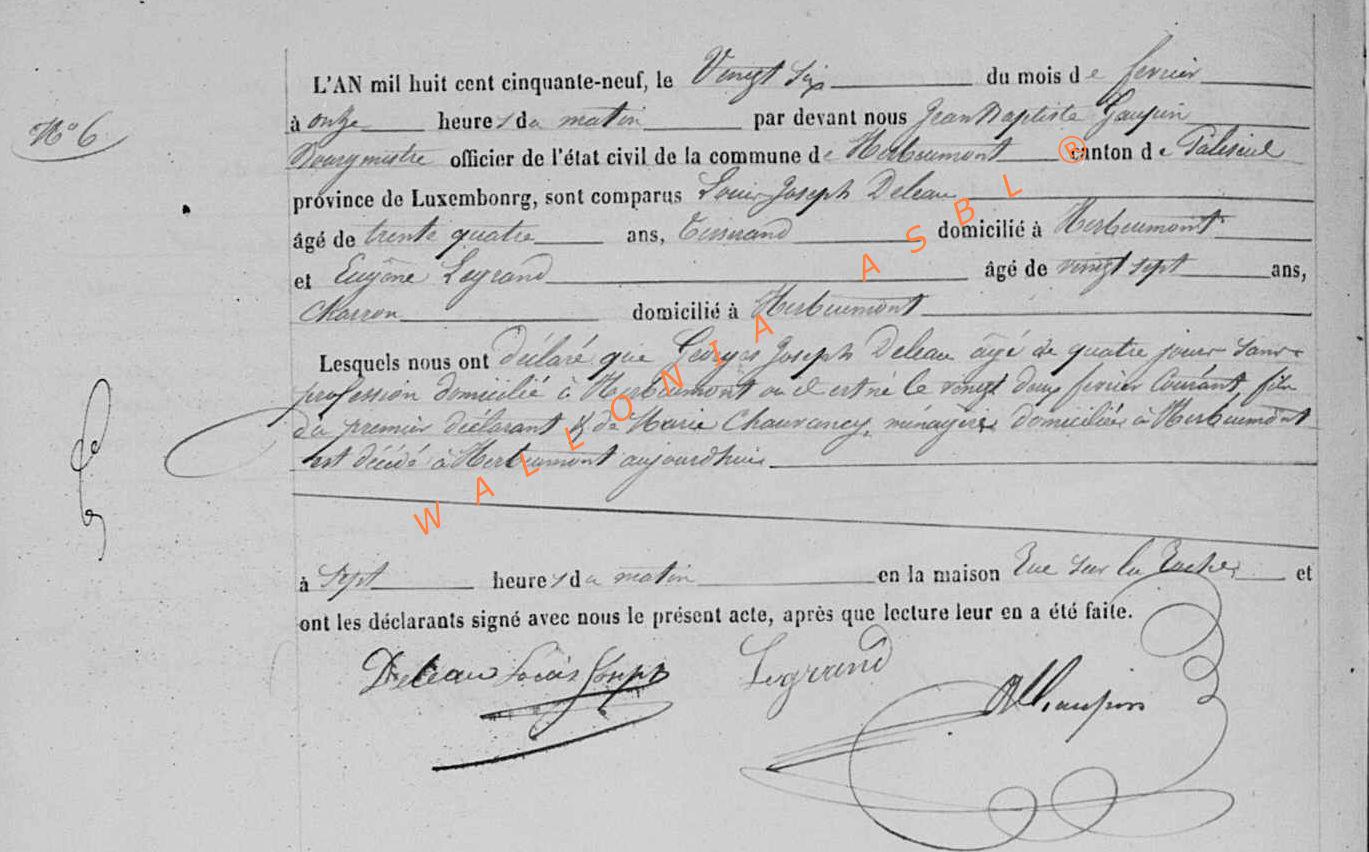 L'AN mil huit cent cinquante-neuf, le Vingt Six du mois de fevrier
N° 6
à onze heures du matin par devant nous Jean Baptiste Gaupin
Bourgmestre officier de l'état civil de la commune de Herbeumont canton de Paliseul
province de Luxembonrg, sont comparus Louis Joseph Deleau
âgé de trente quatre ans, Tisserand domicilié à Herbeumont
et Eugêne Legrand âgé de vingt sept ans,
Charron domicilié à Herbeumont
Lesquels nous ont déclaré que Georges Joseph Deleau âgé de quatre jours sans
profession domicilié à Herbeumont ou il est né le vingt deux fevrier Courant, fils
du premier déclarant & de Marie Chauvancy, ménagère domiciliés à Herbeumont
est décédé à Herbeumont aujourdhui
à Sept heures du matin en la maison Rue sur la et
ont les déclarants signé avec nous le présent acte, après que lecture leur en a été faite.
Deleau Louis Joseph Legrand
WALLONIA ASBL ®